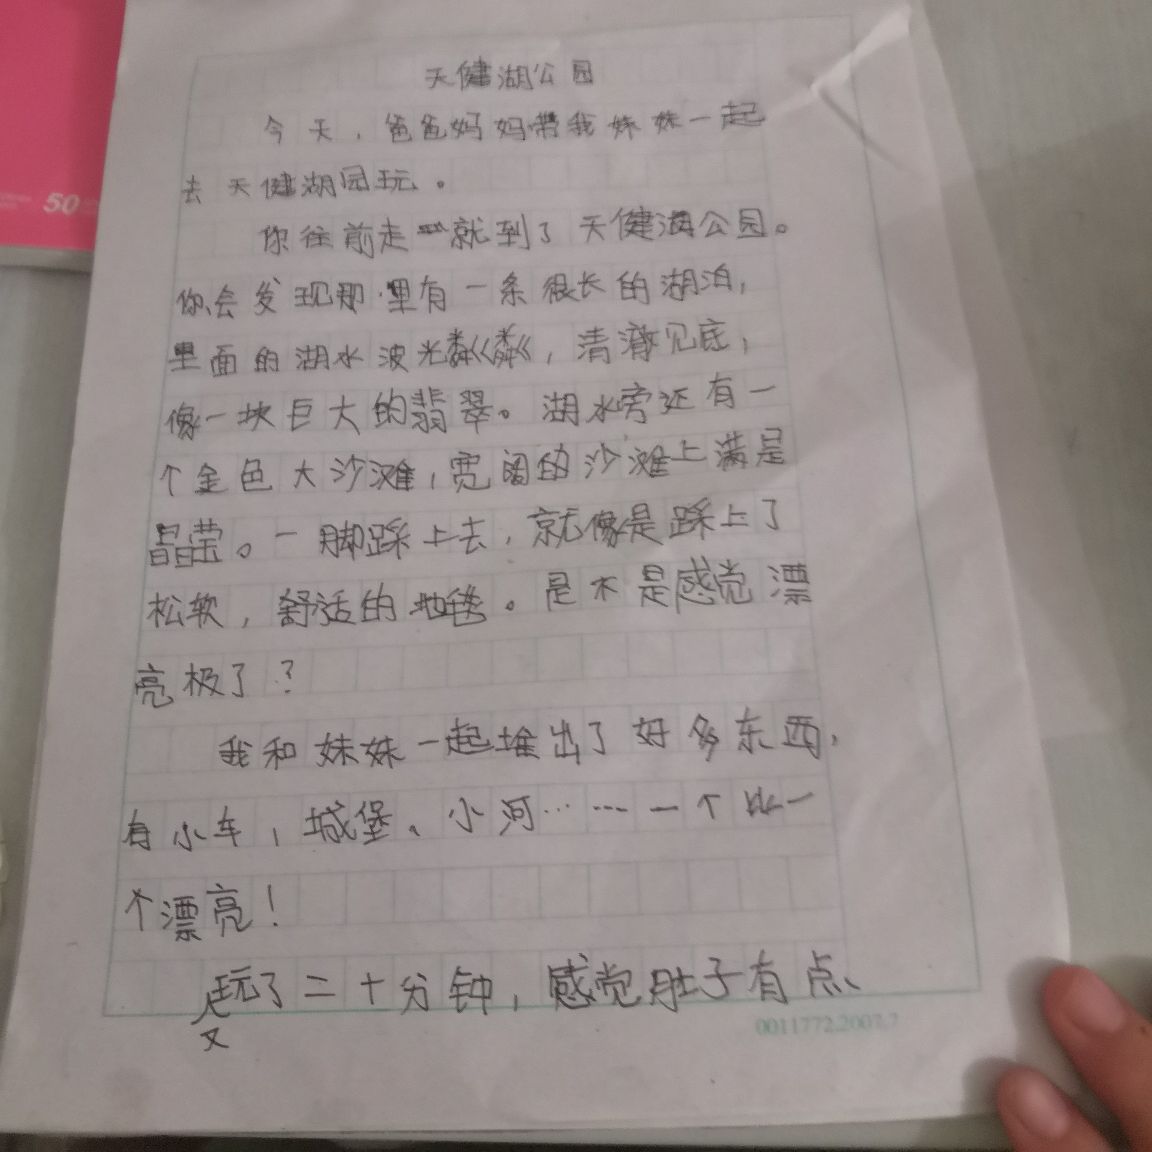 50
天健湖公园
今天，爸爸妈妈带我妹妹一起
去天健湖园玩。
你往前走就到了天健湖公园。
你会发现那里有一条很长的湖泊，
里面的湖水波光粼粼，清澈见底，
像一块巨大的翡翠。湖水旁还有一
个金色大沙滩，宽阔的沙滩上满是
晶莹。一脚踩上去，就像是踩上了
松软，舒适的地毯。是不是感觉漂
亮极了？
我和妹妹一起堆出了好多东西，
有小车，城堡、小河……一个比一
个漂亮！
又玩了二十分钟，感觉肚子有点、
0011772.2007.7